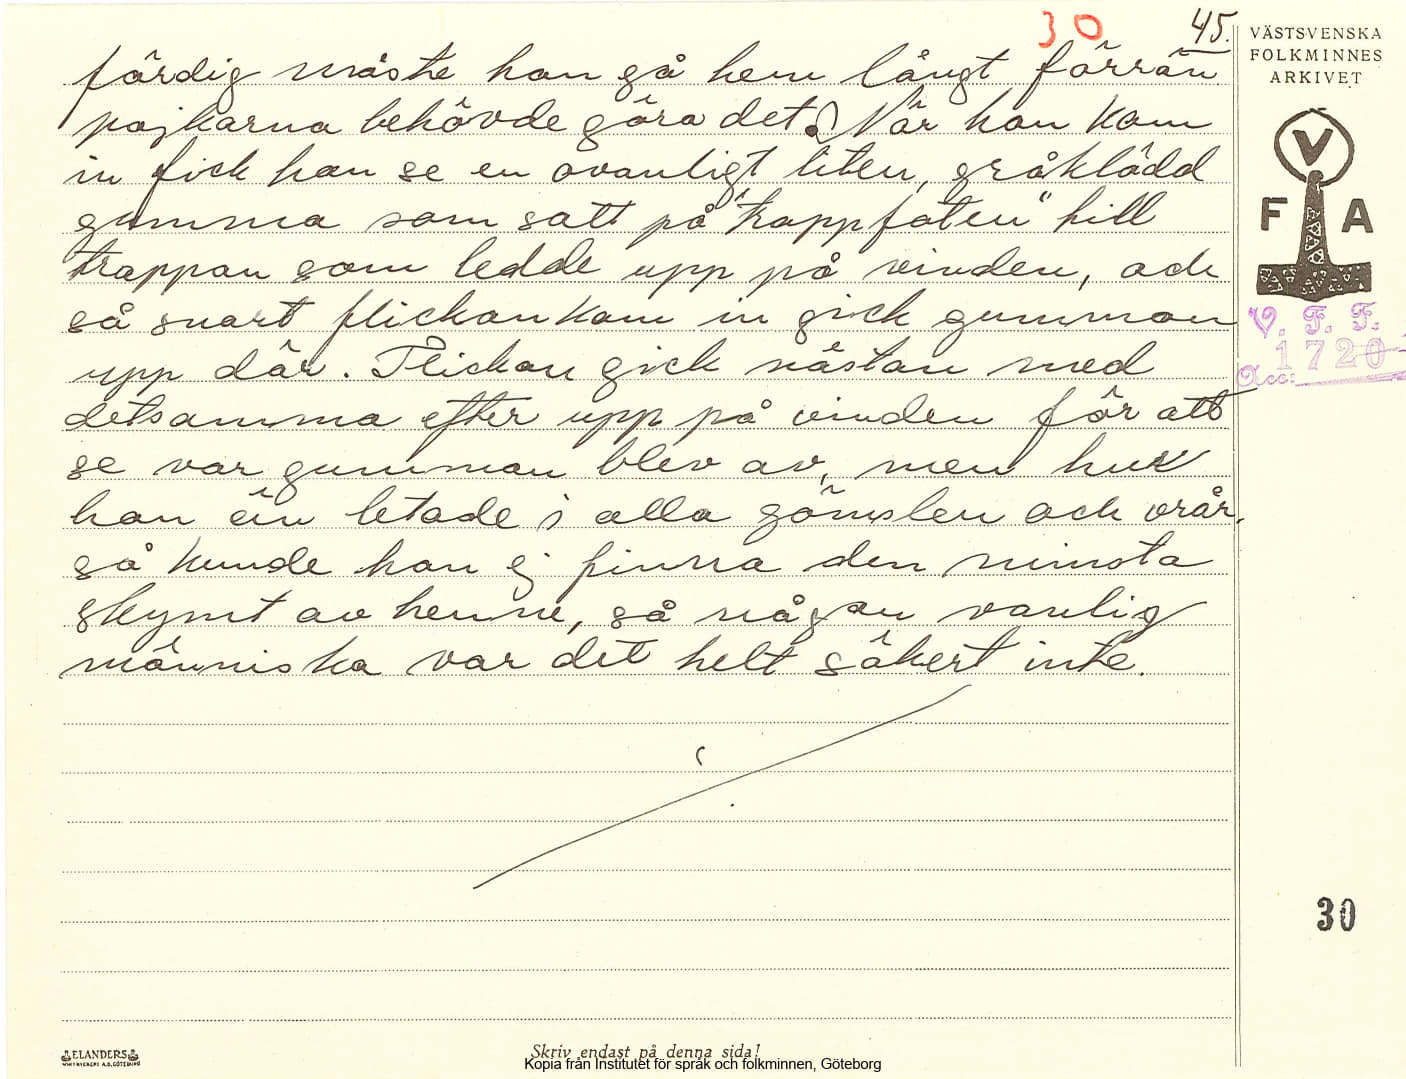 30
45.
VÄSTSVENSKA
FOLKMINNES
ARKIVET
färdig måste han gå hem långt förrän
pojkarna behövde göra det. När han kom
in fick han se en ovanligt liten, gråklädd
gumma som satt på "trappfoten" till
trappan som ledde upp på vinden, och
så snart flickan kom in gick gumman
upp där. Flickan gick nästan med
detsamma efter upp på vinden för att
se var gumman blev av, men hur
han än letade i alla gömslen och vrår,
så kunde han ej finna den minsta
skymt av henne, så någon vanlig
människa var det helt säkert inte.
V
F A
V. F. F.
1720
Acc:
30
ELANDERS
Skriv endast på denna sida!
Kopia från Institutet för språk och folkminnen, Göteborg